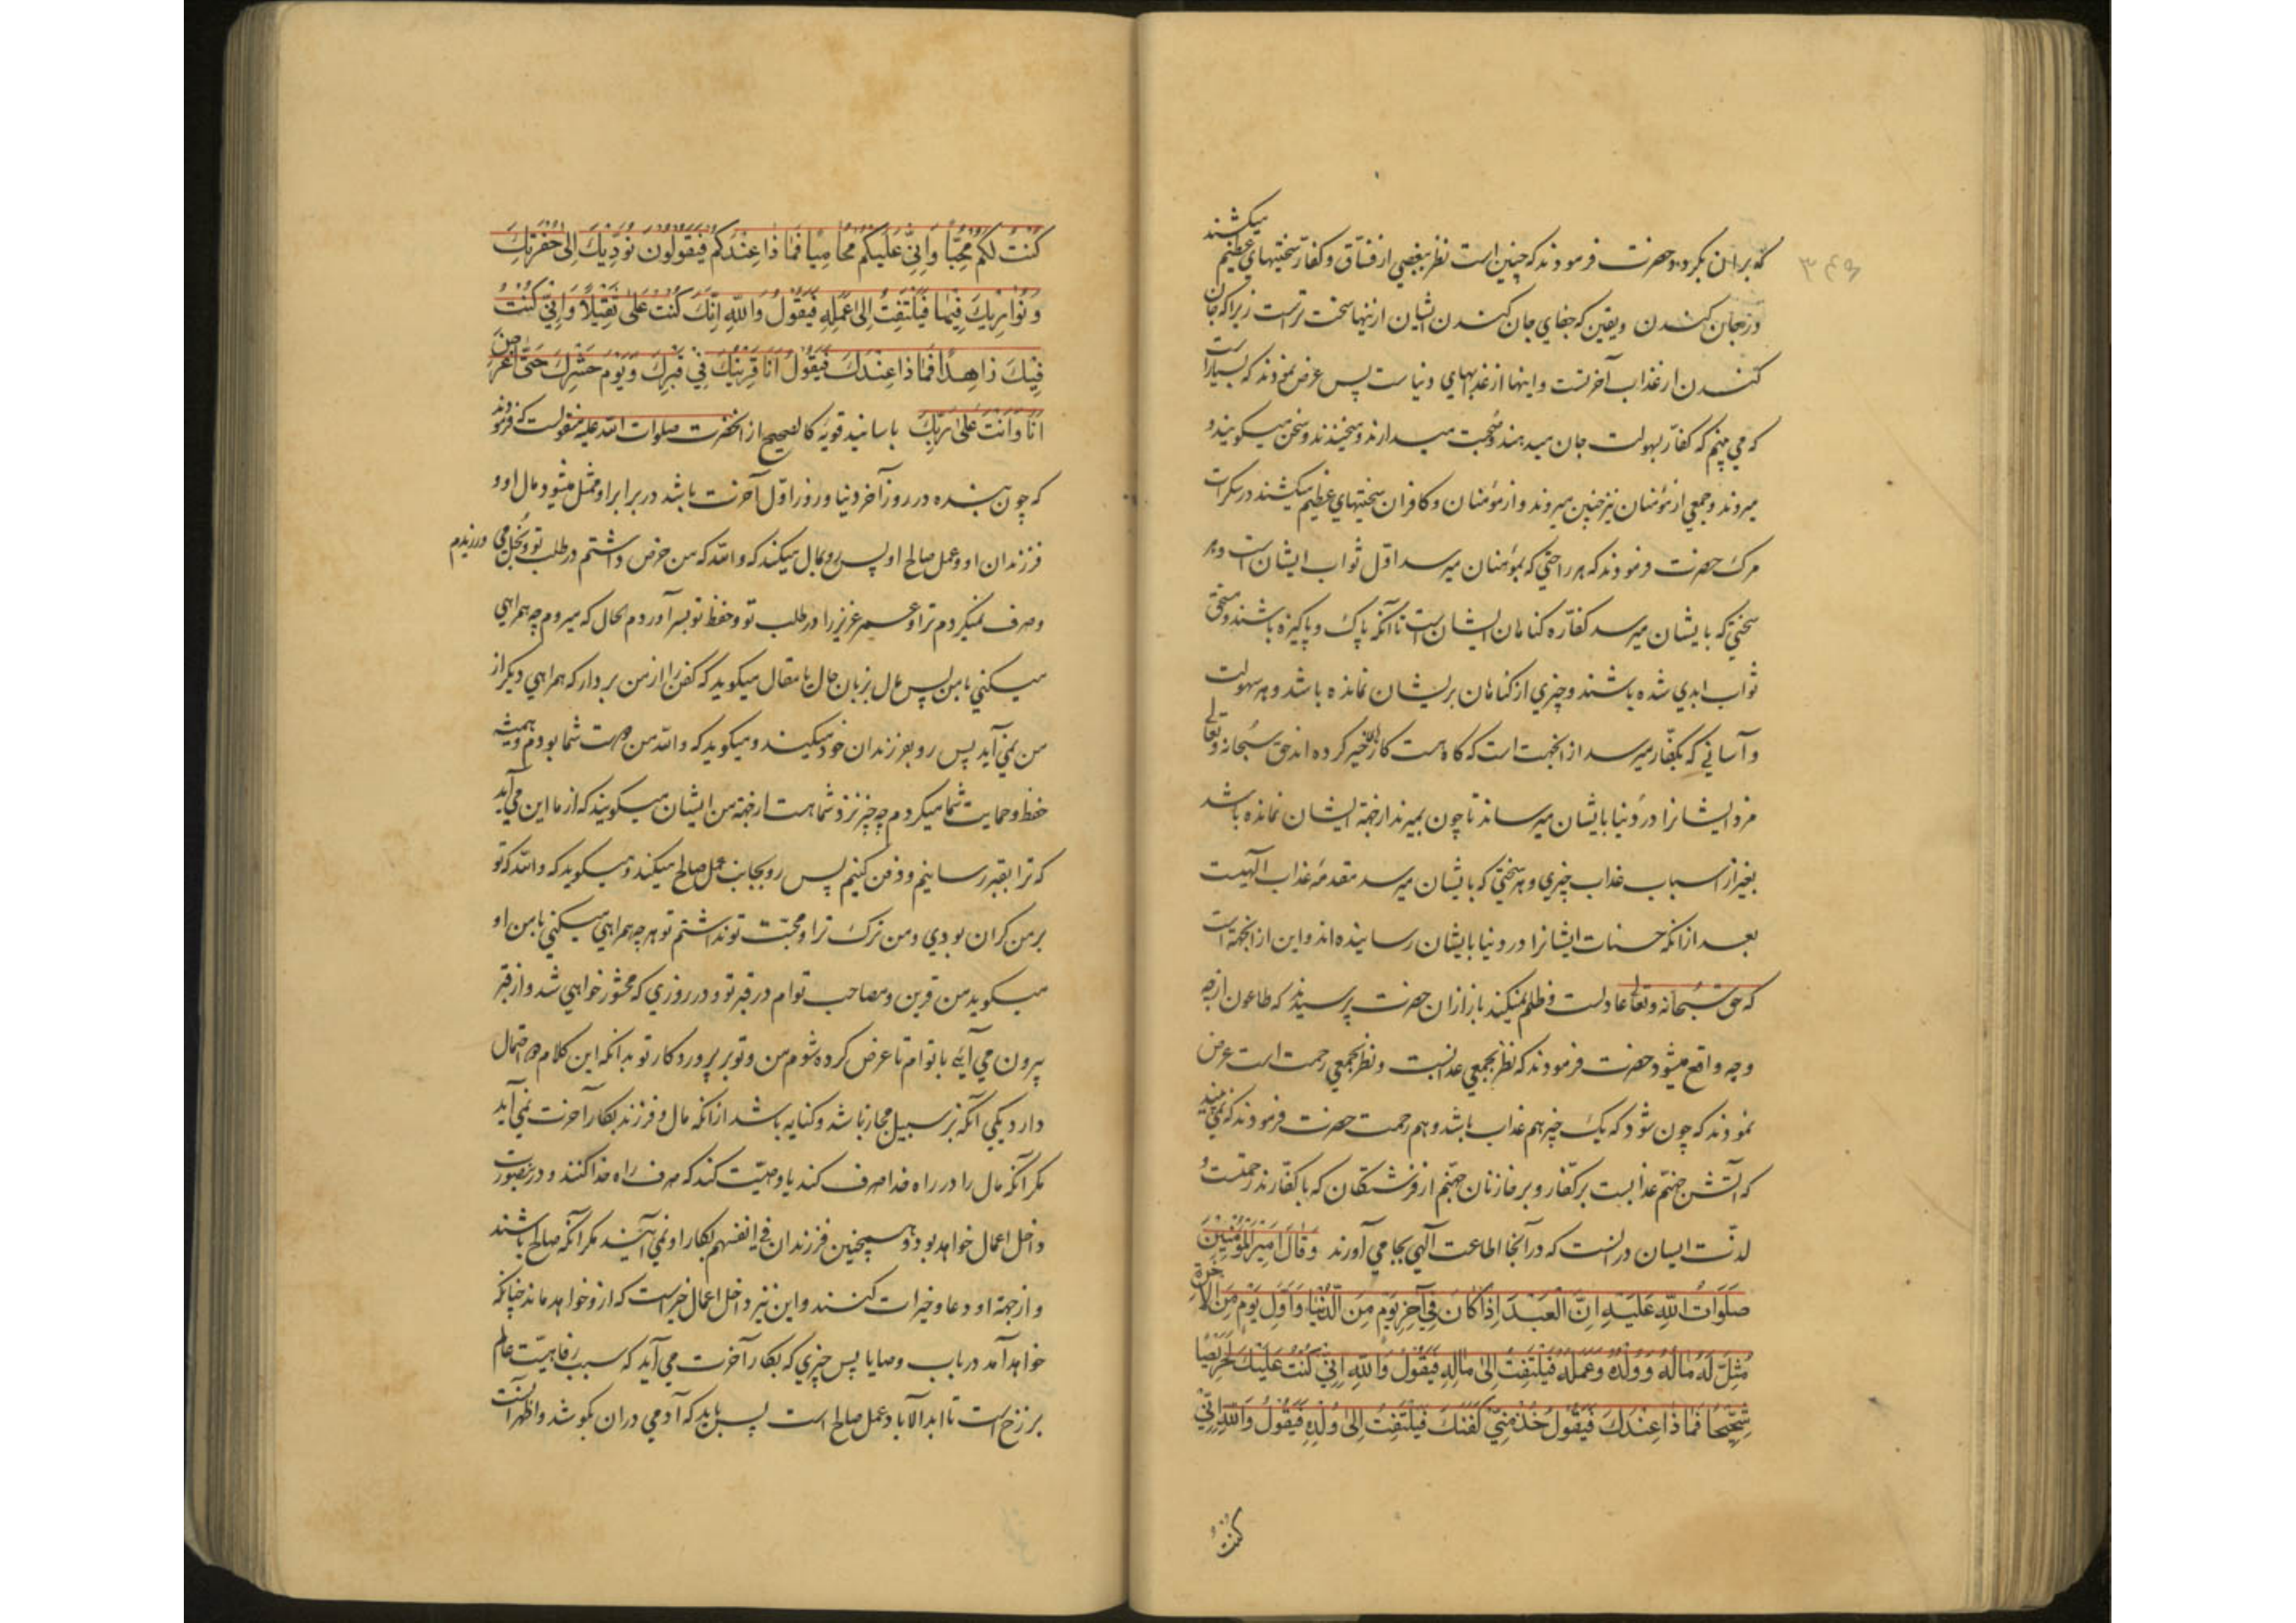 ۳۴۹
که بر ان بگردد و حضرت فرمودند که چنین است نظر ببعضی از فسّاق و کفار سختیهای عظیم میکشند
در جان کندن و یقین که جفای جان کندن ایشان ازینها سخت ترست زیرا که جان
کندن از عذاب آخرتست و اینها از عذابهای دنیاست پس عرض نمودند که بسیارست
که می بینم که کفار بسهولت جان میدهند و صحبت میدارند و میخندند و سخن میکویند و
میروند و جمعی از مؤمنان نیز چنین میروند و از مؤمنان و کافران سختیهای عظیم میکشند در سکرات
مرک حضرت فرمودند که هر راحتی که بمؤمنان میرسد اوّل ثواب ایشان است و هر
سختی که بایشان میرسد کفّاره کناهان ایشان است تا آنکه پاک و پاکیزه باشند و مستحق
ثواب ابدی شده باشند و چیزی از کناهان بر ایشان نمانده باشد و هر سهولت
و آسانی که بکفّار میرسد از انجهت است که کاه هست کارهای خیر کرده اند حق سبحانه و تعالی
مزد ایشانرا در دنیا بایشان میرساند تا چون بمیرند از جهة ایشان نمانده باشد
بغیر از اسباب عذاب چیزی و هر سختی که بایشان میرسد مقدمهٔ عذاب الهیست
بعد از انکه حسنات ایشانرا در دنیا بایشان رسانیده اند و این از انجهة است
که حق سبحانه و تعالی عادلست و ظلم نمیکند باز از ان حضرت پرسیدند که طاعون از چه
وجه واقع میشود حضرت فرمودند که نظر بجمعی عذابست و نظر بجمعی رحمت است عرض
نمودند که چون شود که یک چیز هم عذاب باشد و هم رحمت حضرت فرمودند که نمی بینید
که آتش جهنّم عذابست بر کفّار و بر خازنان جهنّم از فرشتکان که با کفّارند رحمتست و
لذّت ایشان در انست که در آنجا اطاعت آلهی بجا می آورند وَقَالَ اَمیرُ المُؤمِنِینَ
صَلَوَاتُ اللّهِ عَلَیْهِ اِنَّ الْعَبْدَ اِذَا کَانَ فِی آخِرِ یَوْمٍ مِنَ الدُّنْیَا وَاَوَّلِ یَوْمٍ مِنَ الآخِرَةِ
مُثِّلَ لَهُ مَالُهُ وَوَلَدُهُ وَعَمَلُهُ فَیَلْتَفِتُ اِلیٰ مَالِهِ فَیَقُولُ وَاللّهِ اِنِّی کُنْتُ عَلَیْكَ لَحَرِیصًا
شَحِیحًا فَمَا ذَا عِنْدَكَ فَیَقُولُ خُذْ مِنِّی کَفَنَكَ فَیَلْتَفِتُ اِلیٰ وُلْدِهِ فَیَقُولُ وَاللّهِ اِنِّی
کُنْتُ
کُنْتُ لَکُمْ مُحِبًّا وَاِنِّی عَلَیْکُمْ مُحَامِیًا فَمَا ذَا عِنْدَکُمْ فَیَقُولُونَ نُؤَدِّیكَ اِلیٰ حُفْرَتِكَ
وَنُوَارِیكَ فِیهَا فَیَلْتَفِتُ اِلیٰ عَمَلِهِ فَیَقُولُ وَاللّهِ اِنَّكَ کُنْتَ عَلَیَّ ثَقِیلاً وَاِنِّی کُنْتُ
فِیكَ زَاهِدًا فَمَا ذَا عِنْدَكَ فَیَقُولُ اَنَا قَرِینُكَ فِی قَبْرِكَ وَیَوْمِ حَشْرِكَ حَتّیٰ اُعْرَضَ
اَنَا وَاَنْتَ عَلیٰ رَبِّكَ باسانید قویّه کالصحیح از انحضرت صلوات الله علیه منقولست که فرمودند
که چون بنده در روز آخر دنیا و روز اوّل آخرت باشد در برابر او ممثل میشود مال او و
فرزندان او و عمل صالح او پس رو بمال میکند که والله که من حرص داشتم در طلب تو و بخل می ورزیدم
و صرف نمیکردم ترا و عمر عزیز را در طلب تو و حفظ تو بسر آوردم الحال که میروم چه همراهی
میکنی با من پس مال بزبان حال یا مقال میکوید که کفن را از من بردار که همراهی دیکر از
من نمی آید پس رو بفرزندان خود میکند و میکوید که والله من دوست شما بودم و همیشه
حفظ و حمایت شما میکردم چه چیز نزد شما هست از جهة من ایشان میکویند که از ما این می آید
که ترا بقبر رسانیم و دفن کنیم پس رو بجانب عمل صالح میکند و میکوید که والله که تو
بر من کران بودی و من ترک ترا و محبّت تو نداشتم تو هر چه همراهی میکنی با من او
میکوید من قرین و مصاحب توام در قبر تو و در روزی که محشور خواهی شد و از قبر
بیرون می آیی با توام تا عرض کرده شوم من و تو بر پروردکار تو بدانکه این کلام دو احتمال
دارد یکی آنکه بر سبیل مجاز باشد و کنایه باشد از انکه مال و فرزند بکار آخرت نمی آید
مکر آنکه مال را در راه خدا صرف کند یا وصیّت کند که صرف راه خدا کنند و درینصورت
داخل اعمال خواهد بود و همچنین فرزندان فی انفسهم بکار او نمی آیند مکر آنکه صالح باشند
و از جهة او دعا و خیرات کنند و این نیز داخل اعمال خیرست که ازو خواهد ماند چنانکه
خواهد آمد در باب وصایا پس چیزی که بکار آخرت می آید که سبب رفاهیّت عالم
برزخ است تا ابد الآباد عمل صالح است پس باید که آدمی در ان بکوشد و اظهر آنست